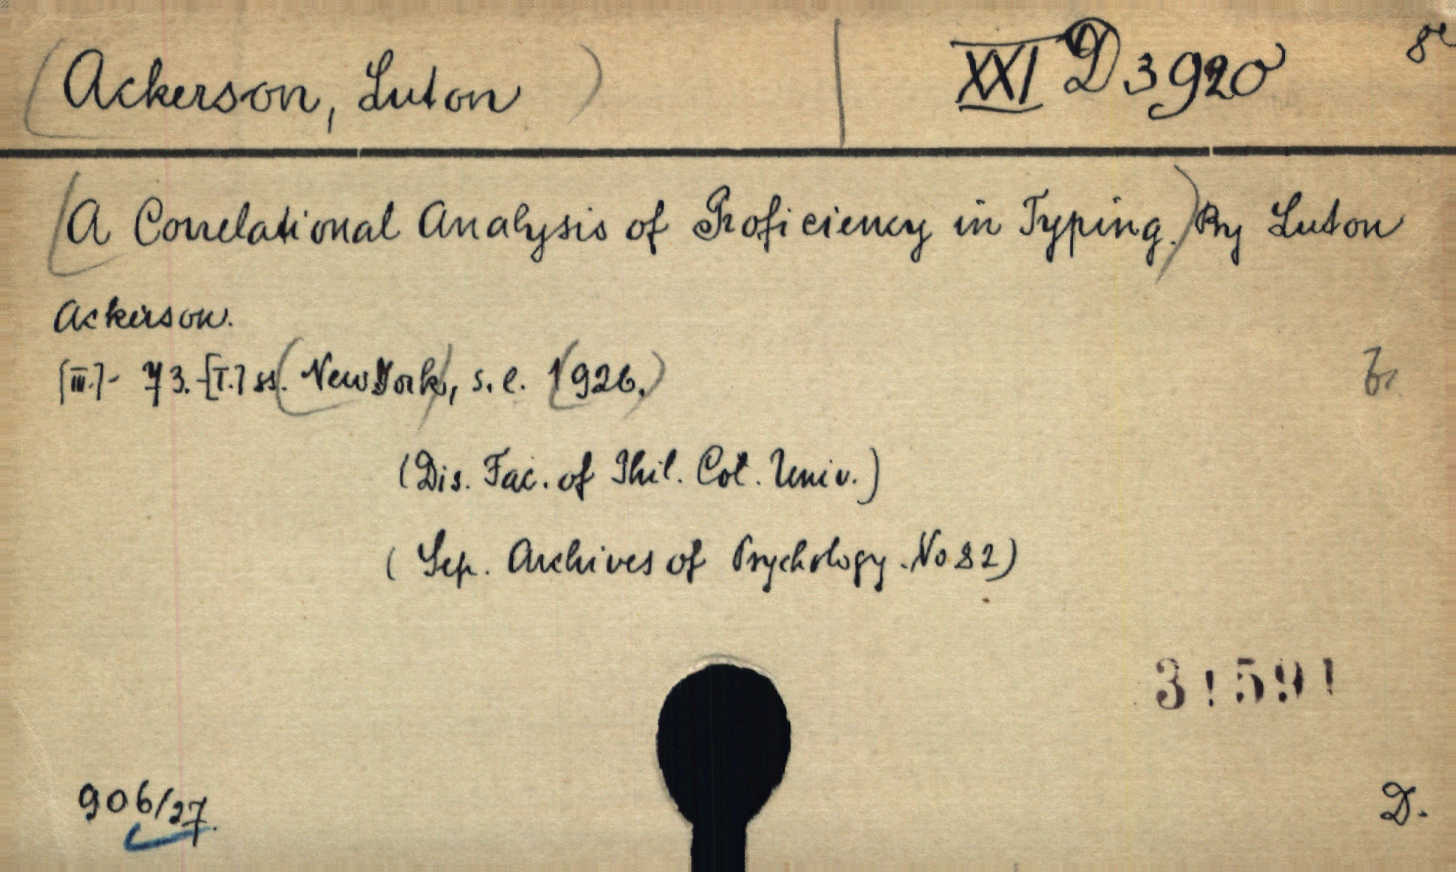 (Ackerson, Luton) | XXI D 3920 8e
(A Correlational Analysis of Proficiency in Typing.) By Luton
Ackerson.
[III.]- 73.-[I.] ss. (New York), s. e. (1926.)
(Dis. Fac. of Phil. Col. Univ.)
(Sep. Archives of Psychology. No 82)
31591
906/27.
D.